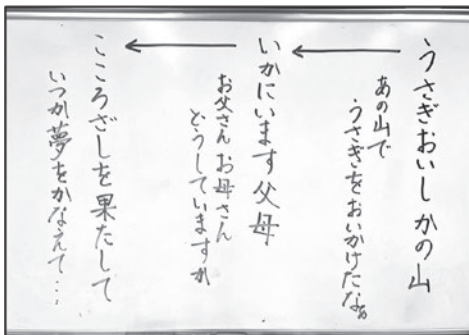 うさぎおいしかの山
あの山で
うさぎをおいかけたなぁ
いかにいます父母
お父さんお母さん
どうしていますか
こころざしを果たして
いつか夢をかなえて…